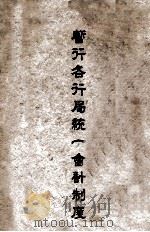 暫行各行局統一會計制度